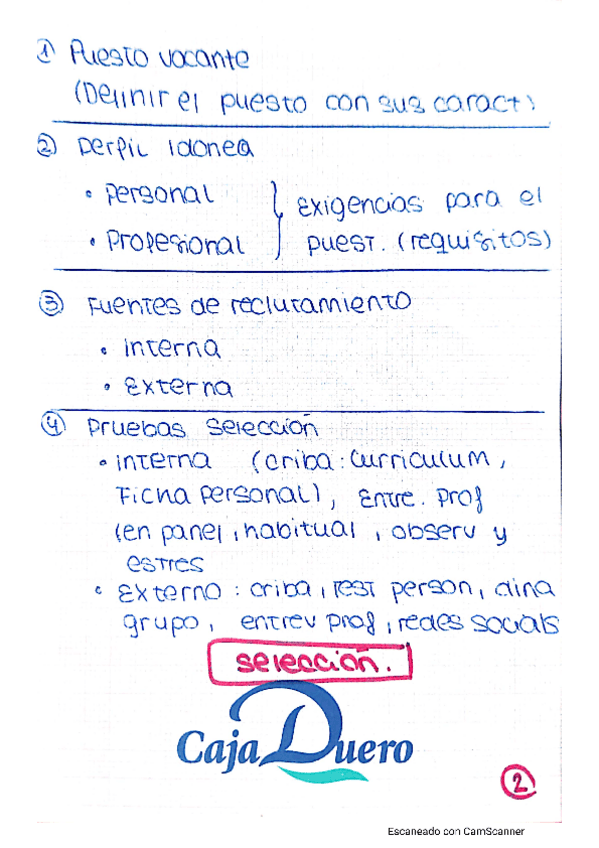 ① Puesto vacante
(Definir el puesto con sus caract)
② Perfil idonea
• personal
exigencias para el
• Profesional
puest. (requisitos)
③ Fuentes de reclutamiento
• interna
• Externa
④ Pruebas selección
• interna (criba: curriculum,
Ficha personal), Entre. Prof
(en panel, habitual, observ y
estres
• Externo: criba, test person, dina
grupo, entrev prof, redes socials
selección.
Caja Duero
②
Escaneado con CamScanner